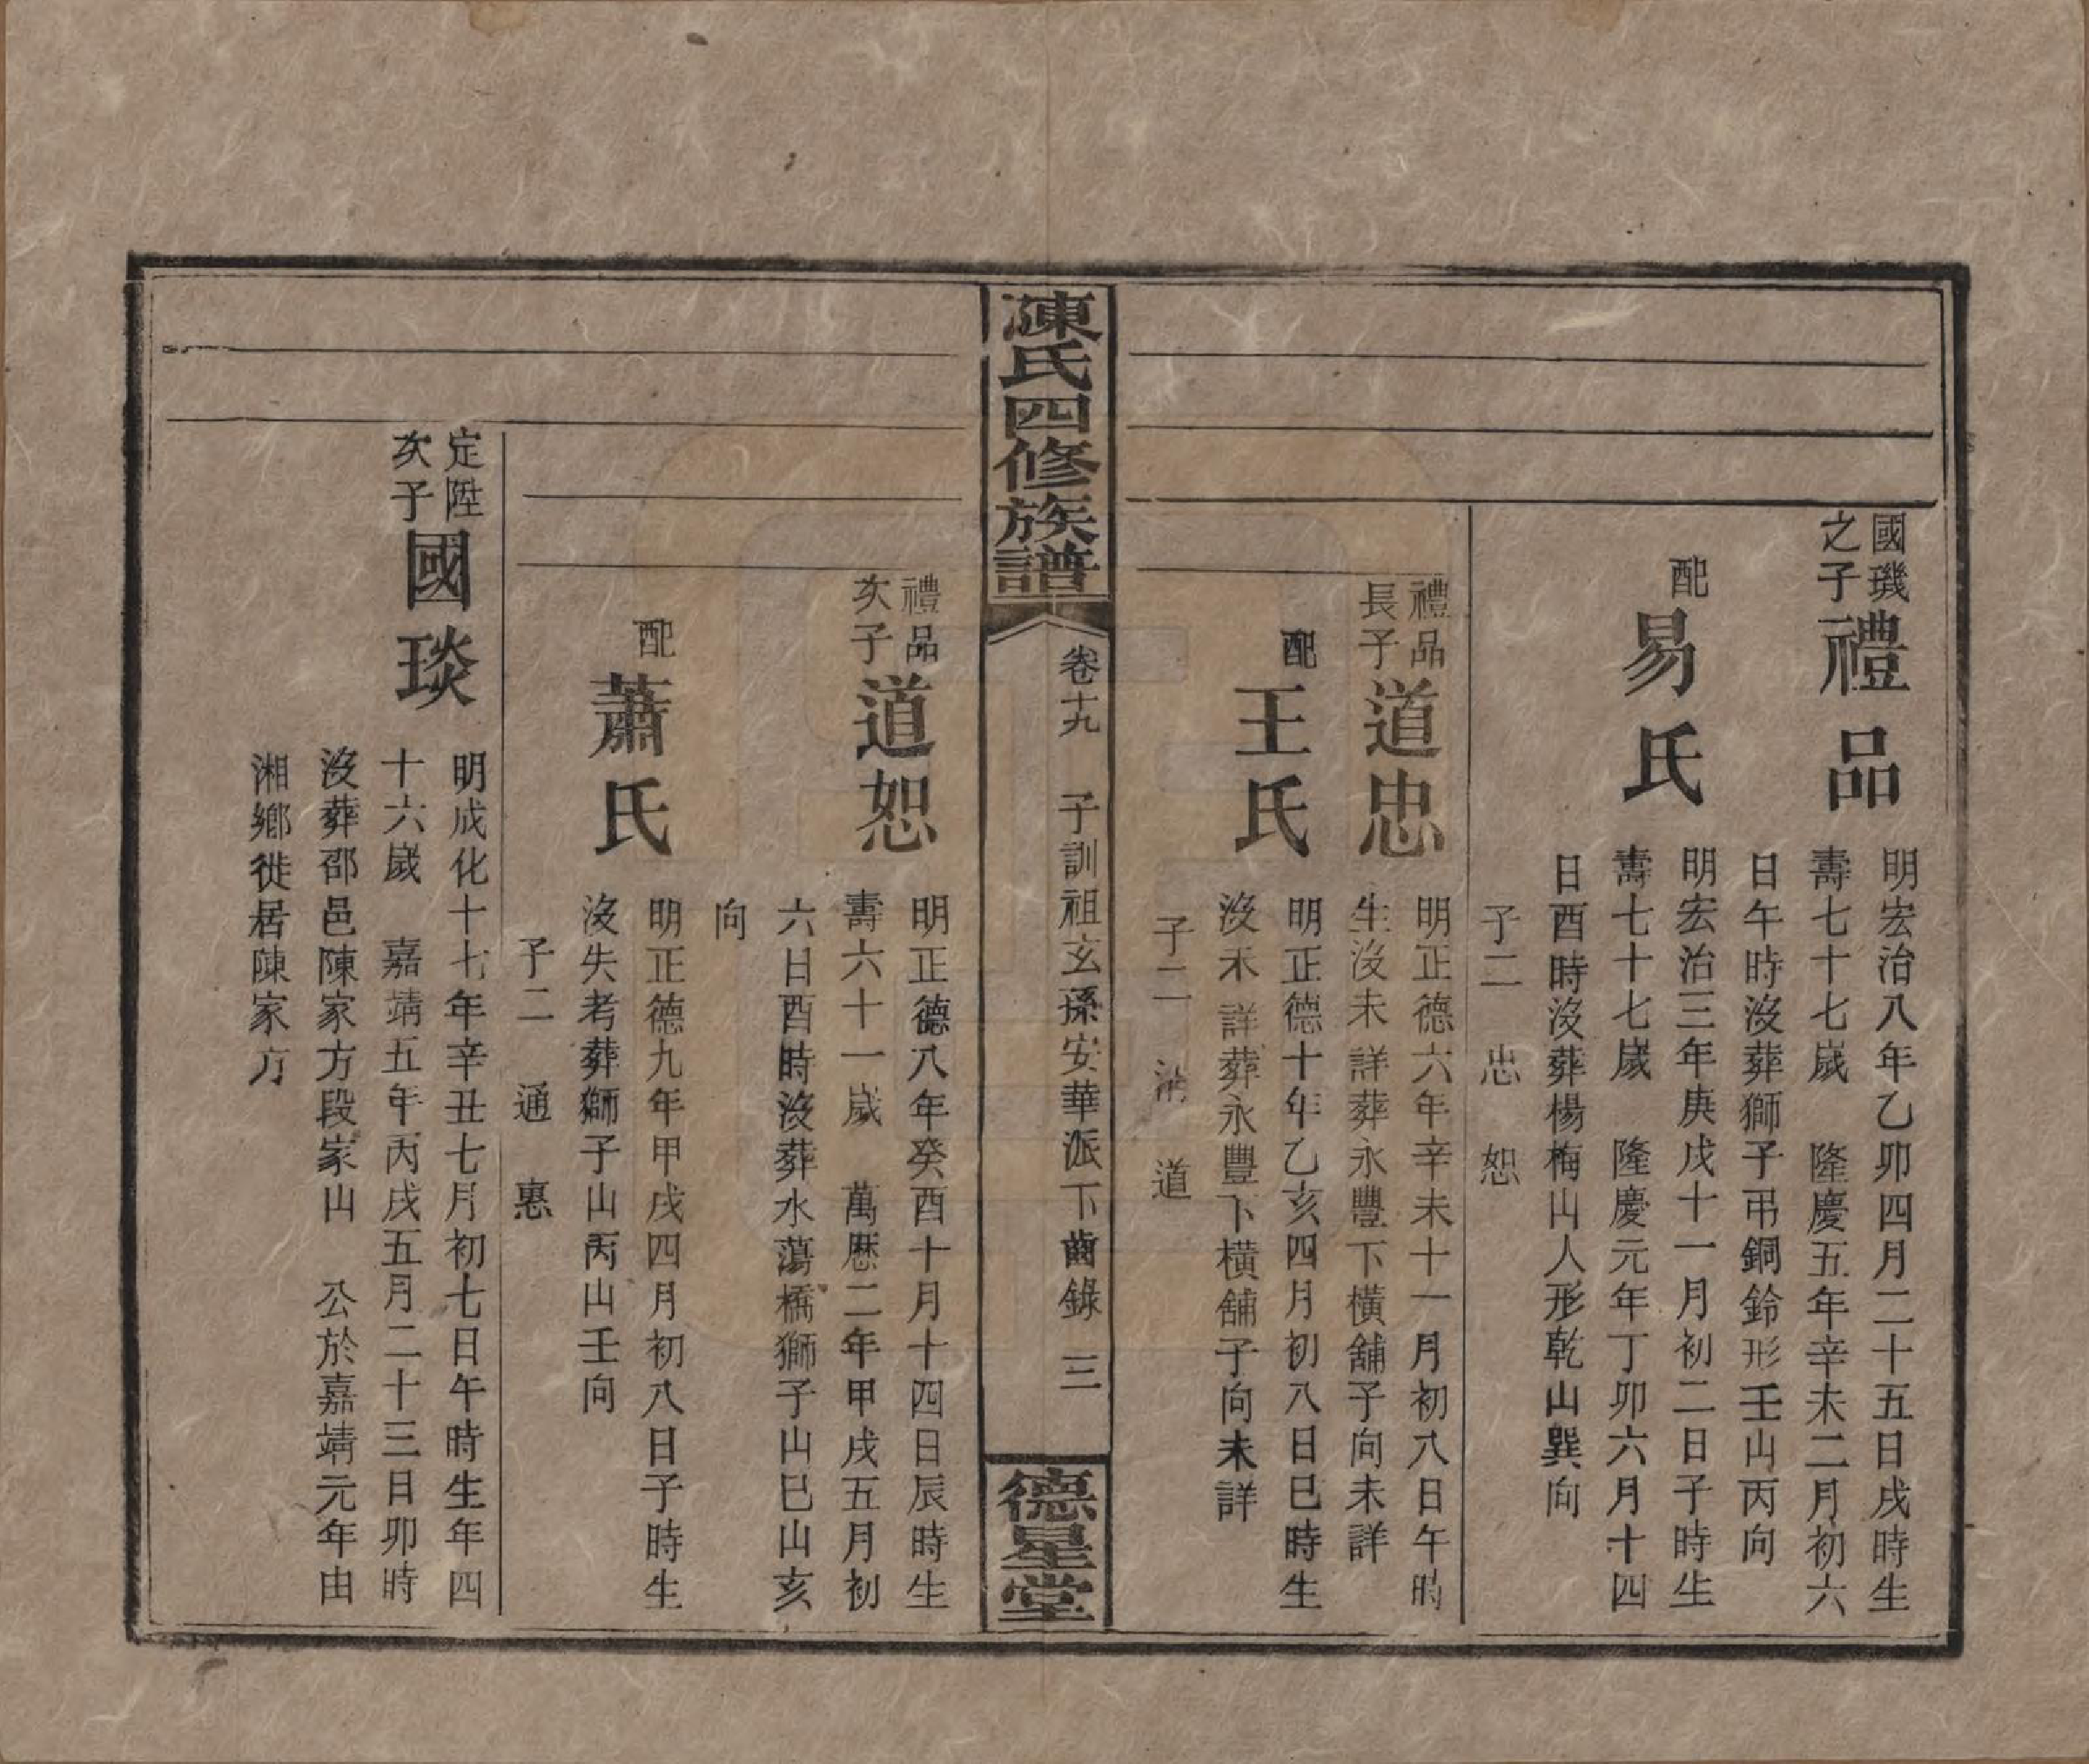 國璣
之子
禮品
明宏治八年乙卯四月二十五日戌時生
壽七十七嵗 隆慶五年辛未二月初六
日午時沒葬獅子弔銅鈴形壬山丙向
配
易氏
明宏治三年庚戌十一月初二日子時生
壽七十七嵗 隆慶元年丁卯六月十四
日酉時沒葬楊梅山人形乾山巽向
子二 忠 恕
禮品
長子
道忠
明正德六年辛未十一月初八日午時
生沒未詳葬永豐下橫舖子向未詳
配
王氏
明正德十年乙亥四月初八日巳時生
沒未詳葬永豐下橫舖子向未詳
子二 道
陳氏四修族譜
卷十九 子訓祖玄孫安華派下齒錄 三
德星堂
禮品
次子
道恕
明正德八年癸酉十月十四日辰時生
壽六十一嵗 萬厯二年甲戌五月初
六日酉時沒葬水蕩橋獅子山巳山亥
向
配
蕭氏
明正德九年甲戌四月初八日子時生
沒失考葬獅子山丙山壬向
子二 通 惠
定陞
次子
國琰
明成化十七年辛丑七月初七日午時生年四
十六嵗 嘉靖五年丙戌五月二十三日卯時
沒葬邵邑陳家方段家山 公於嘉靖元年由
湘鄉徙居陳家方